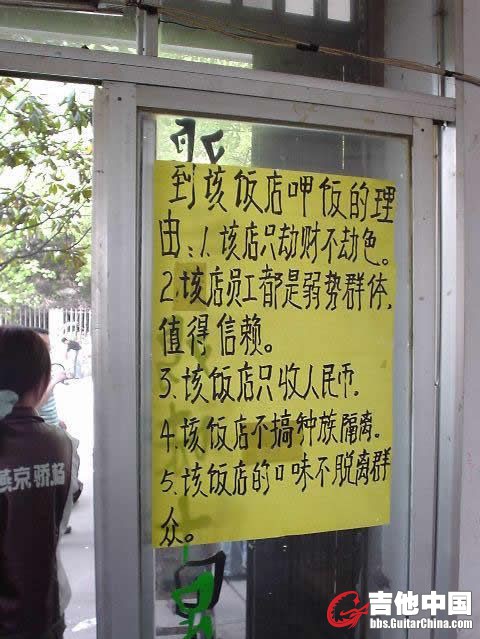 到该饭店呷饭的理
由:1.该店只劫财不劫色。
2.该店员工都是弱势群体,
值得信赖。
3.该饭店只收人民币.
4.该饭店不搞种族隔离。
5.该饭店的口味不脱离群
众。
燕京骄杨
吉他中国
bbs.GuitarChina.com